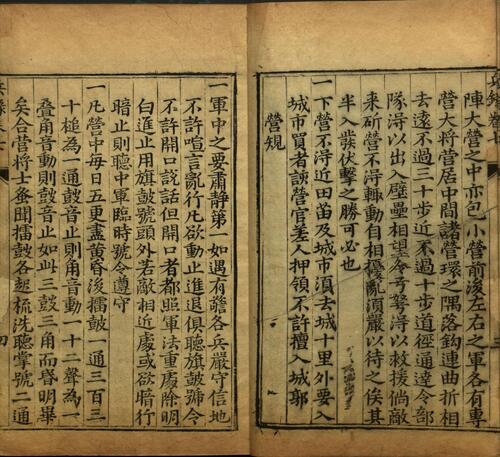 兵錄卷七
陣大營之中亦包小營前後左右之軍各有專
營大將營居中間諸營環之隅落鈎連曲折相
去遠不過三十步近不過十步道徑通達令部
隊淂以出入壁壘相望令弩淂以救援倘敵
來斫營不淂輙動自相擾亂湏嚴以待之俟其
半入𤼵伏擊之勝可必也
一下營不淂近田苗及城市湏去城十里外要入
城市買者諌營官差人押領不許擅入城郭
營䂓
一軍中之要肅靜第一如遇有警各兵嚴守信地
不許喧言亂行凡欲動止進退俱聽旗皷號令
不許開口說話但開口者都照軍法重處除明
白進止用旗皷號頭外若敵相近處或欲暗行
暗止則聽中軍臨時號令遵守
一凡營中每日五更盡黄昏後擂皷一通三百三
十槌為一通皷音止則角音動一十二聲為一
疊角音動則皷音止如此三皷三角而昏明畢
矣合營将士𧊵聞擂皷各起梳洗聽掌號二通